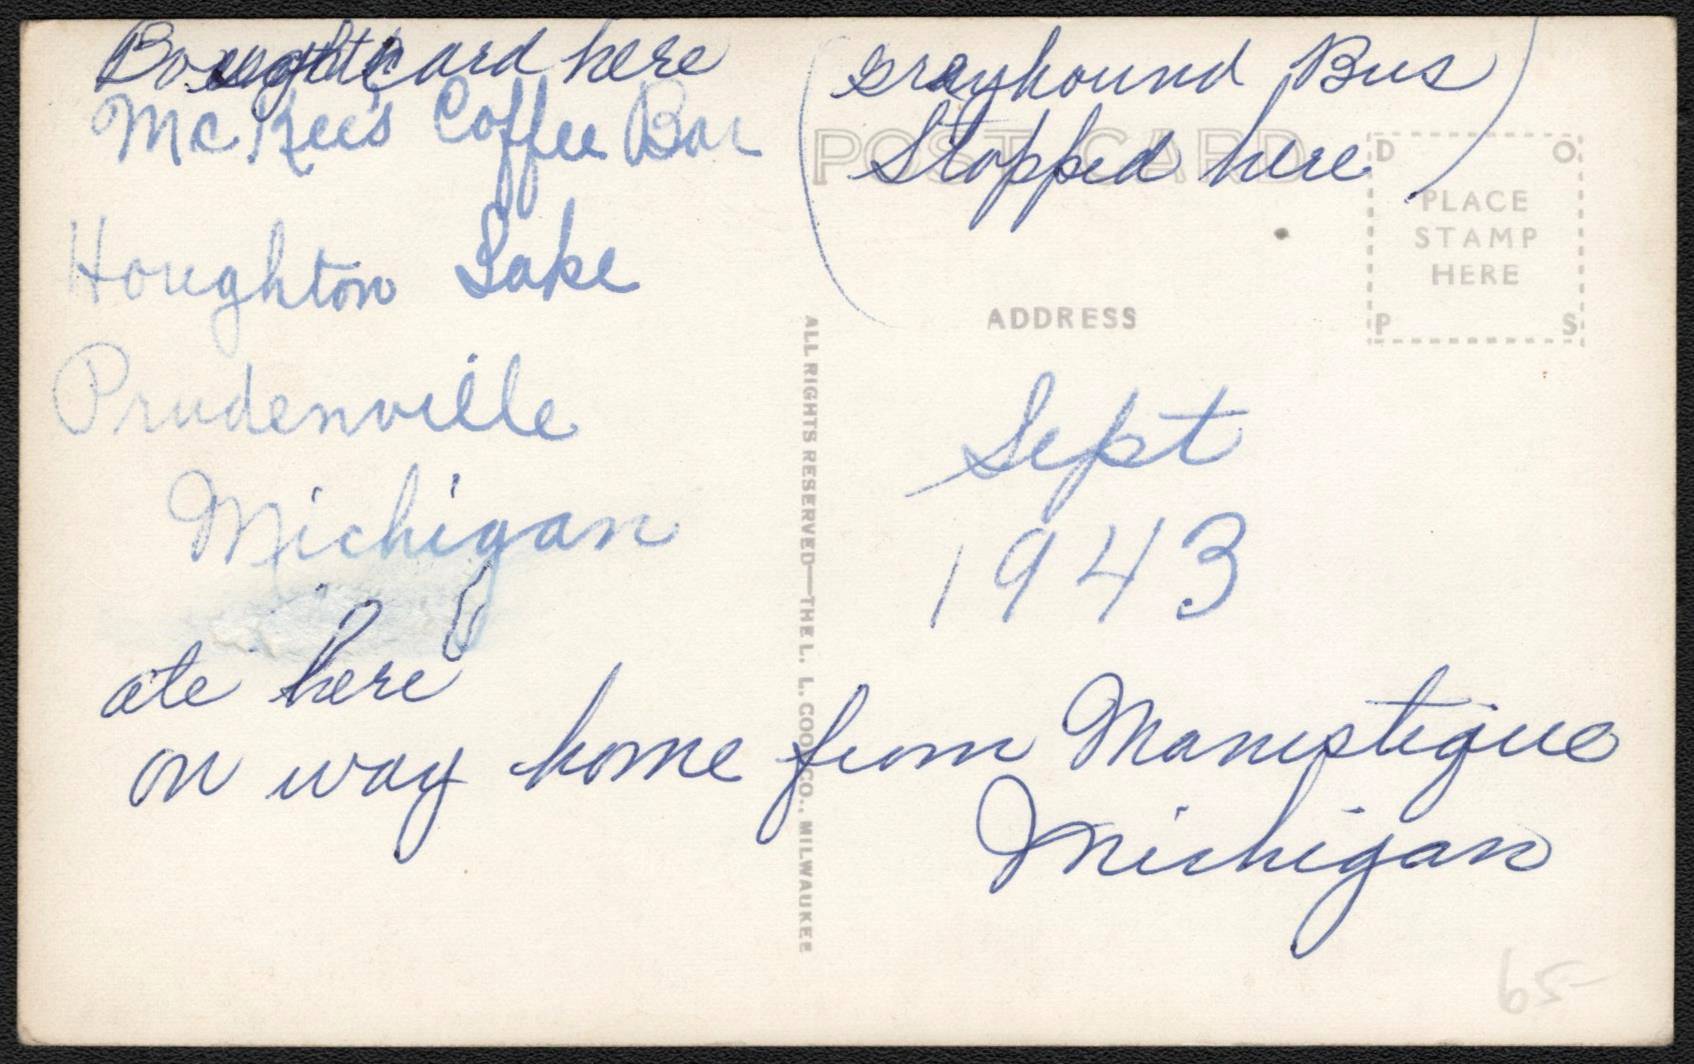 Bought Card here
McKee's Coffee Bar
Houghton Lake
Prudenville
Michigan
ate here
on way home from Manistique
Michigan
(Greyhound Bus
Stopped here)
POST CARD
D O
PLACE
STAMP
HERE
P S
ADDRESS
Sept
1943
ALL RIGHTS RESERVED—THE L. L. COOK CO., MILWAUKEE
65-